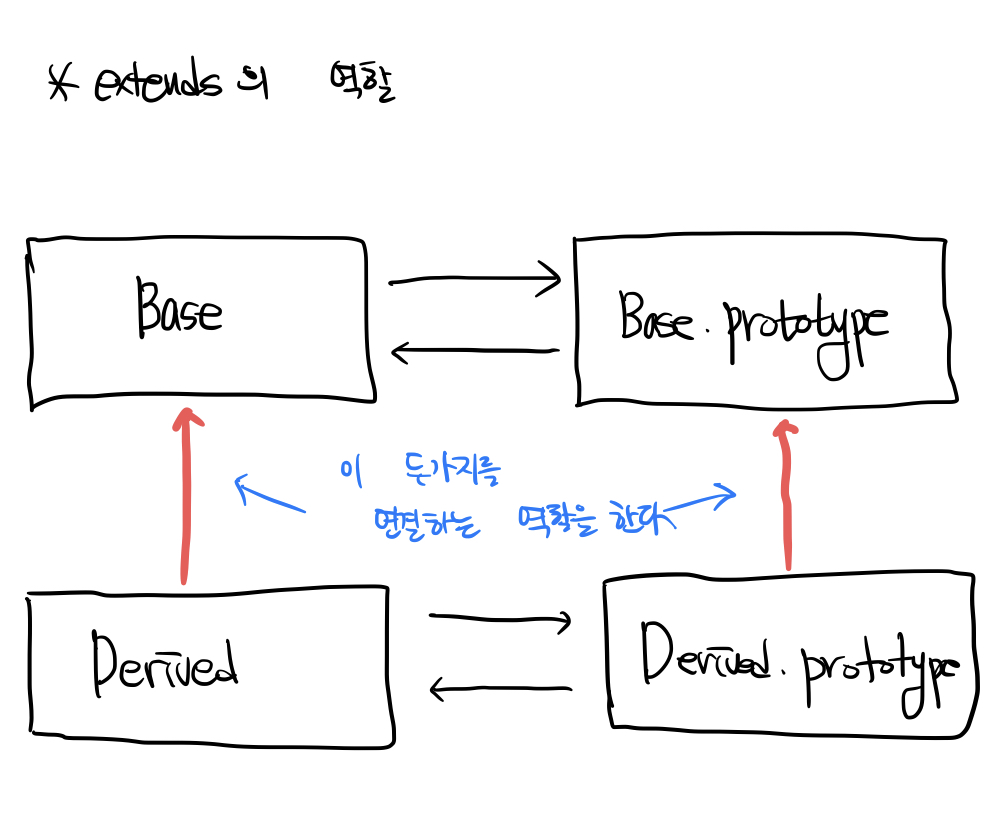 * extends의 역할
Base
Base.prototype
이 두가지를
연결하는 역할을 한다
Derived
Derived.prototype